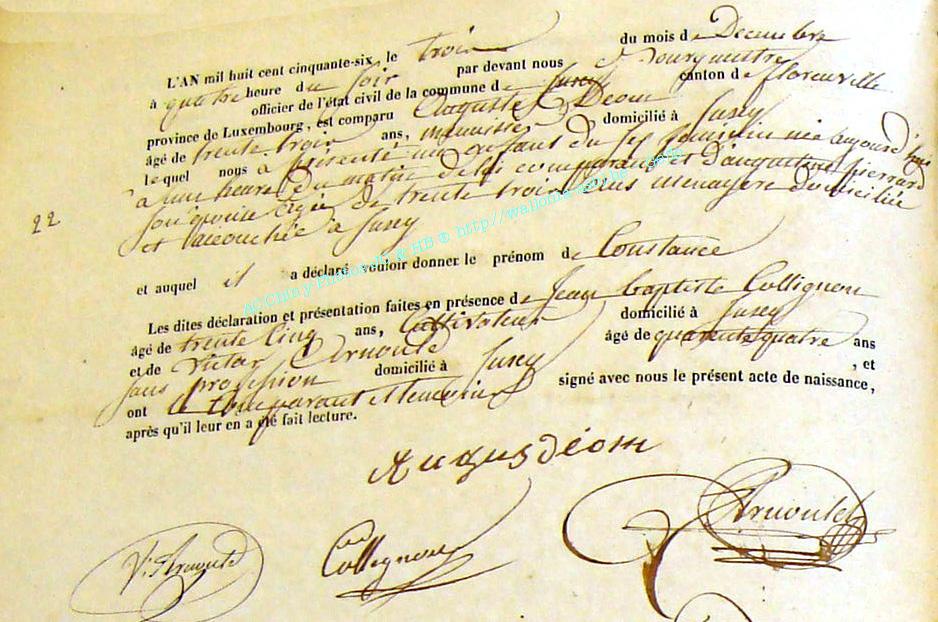 L'AN mil huit cent cinquante-six, le trois du mois de Decembre
à quatre heure du soir par devant nous Bourgmestre
officier de l'état civil de la commune de Jusey canton de florenville
province de Luxembourg, est comparu Auguste Deom
âgé de trente trois ans, menuisier domicilié à Jusey
lequel nous a présenté un enfant du sexe feminin née aujourd'hui
à une heure du matin de lui comparant et D'augustine pierrard
son épouse agée de trente trois ans menagere domiciliée
et accouchée à Jusey
22
et auquel il a déclaré vouloir donner le prénom de Constance
Les dites déclaration et présentation faites en présence de Jean baptiste Collignon
âgé de trente Cinq ans, Cultivateur domicilié à Jusey
et de Victor Arnould âgé de quarente quatre ans
sans profession domicilié à Jusey , et
ont le Comparant et temoins signé avec nous le présent acte de naissance,
après qu'il leur en a été fait lecture.
Augus déom
V. Arnould
Collignon
Arnould